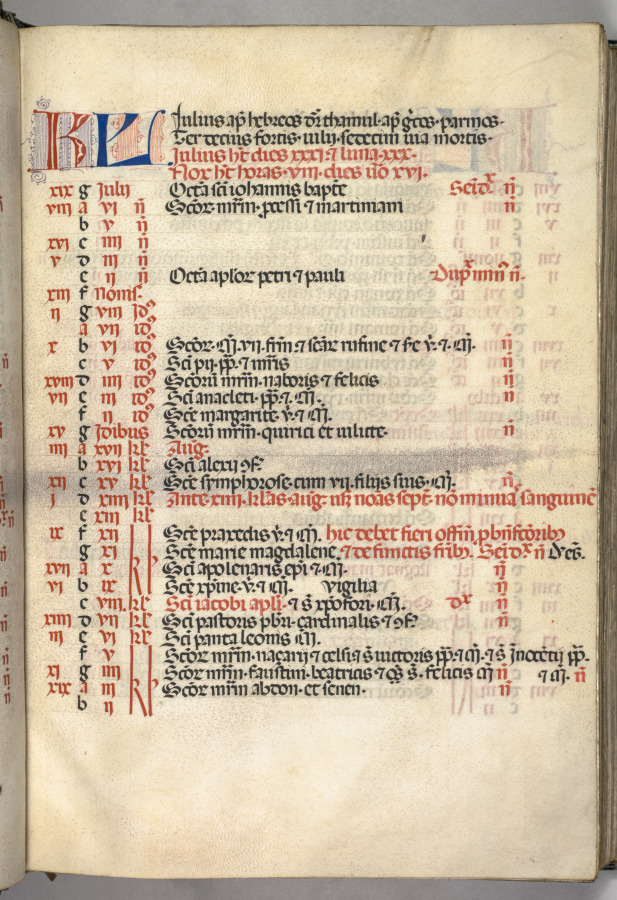 KL Julius ap hebreos dr thamul. ap gcos. parmos.
Ter decimus fortis. iulij. sedecim ma mortis.
Julius ht dies xxxi. 7 luna. xxx.
Nox ht horas. viii. dies uo xvi.
xix g Julij Octa sci iohannis bapte Seidx n
viii a vi n Scor. mrm. pcessi 7 martimani n
b v n
xvi c iiii n
v d iii n
e ii n Octa aplor petri 7 pauli Dup n.
xiii f Nonis.
ii g viii Id9
a vii Id9
x b vi Id9 Scor. m. vii. frm 7 scar rufine 7 se v. 7. m. n
c v Id9 Sci pij. pp. 7 mris n
xviii d iiii Id9 Scoru mrm. naboris 7 felicis n
vii e iii Id9 Sci anacleti. pp. 7. m. n
f ii Id9 Sce margarite. v. 7. m.
xv g Idibus Scoru mrm. quirici et iulitte. n
iiii a xvii kl Aug.
b xvi kl Sci alexij 9f.
xii c xv kl Sce symphorose. cum vii. filijs suis. m. n
i d xiiii kl Ante xiiii. klas. aug. usq noas sept. no minua sanguine
e xiii kl
ix f xii Sce praxedis v. 7 m. hic debet fieri offm pbnfcorib9
g xi Sce marie magdalene. 7 de functis frib. Seidx n
xvii a x kl Sci apolenaris epi. 7 m. n
vi b ix Sce xpine. v. 7 m. vigilia n
c viii. kl Sci iacobi apli. 7 s xpofori. m. dx n
xiiii d vii kl Sci pastoris pbri. cardinalis 7 9f n
iii e vi kl Sci panta leonis m.
f v Scor mrm. nazarij 7 celsi 7 s uictoris pp. 7 m. 7 s Inocetij pp.
xi g iiii kl Scor mrm. faustini. beatricis 7 s. felicis m n 7 m. n
xix a iii Scor mrm abdon. et senen. n
b ii